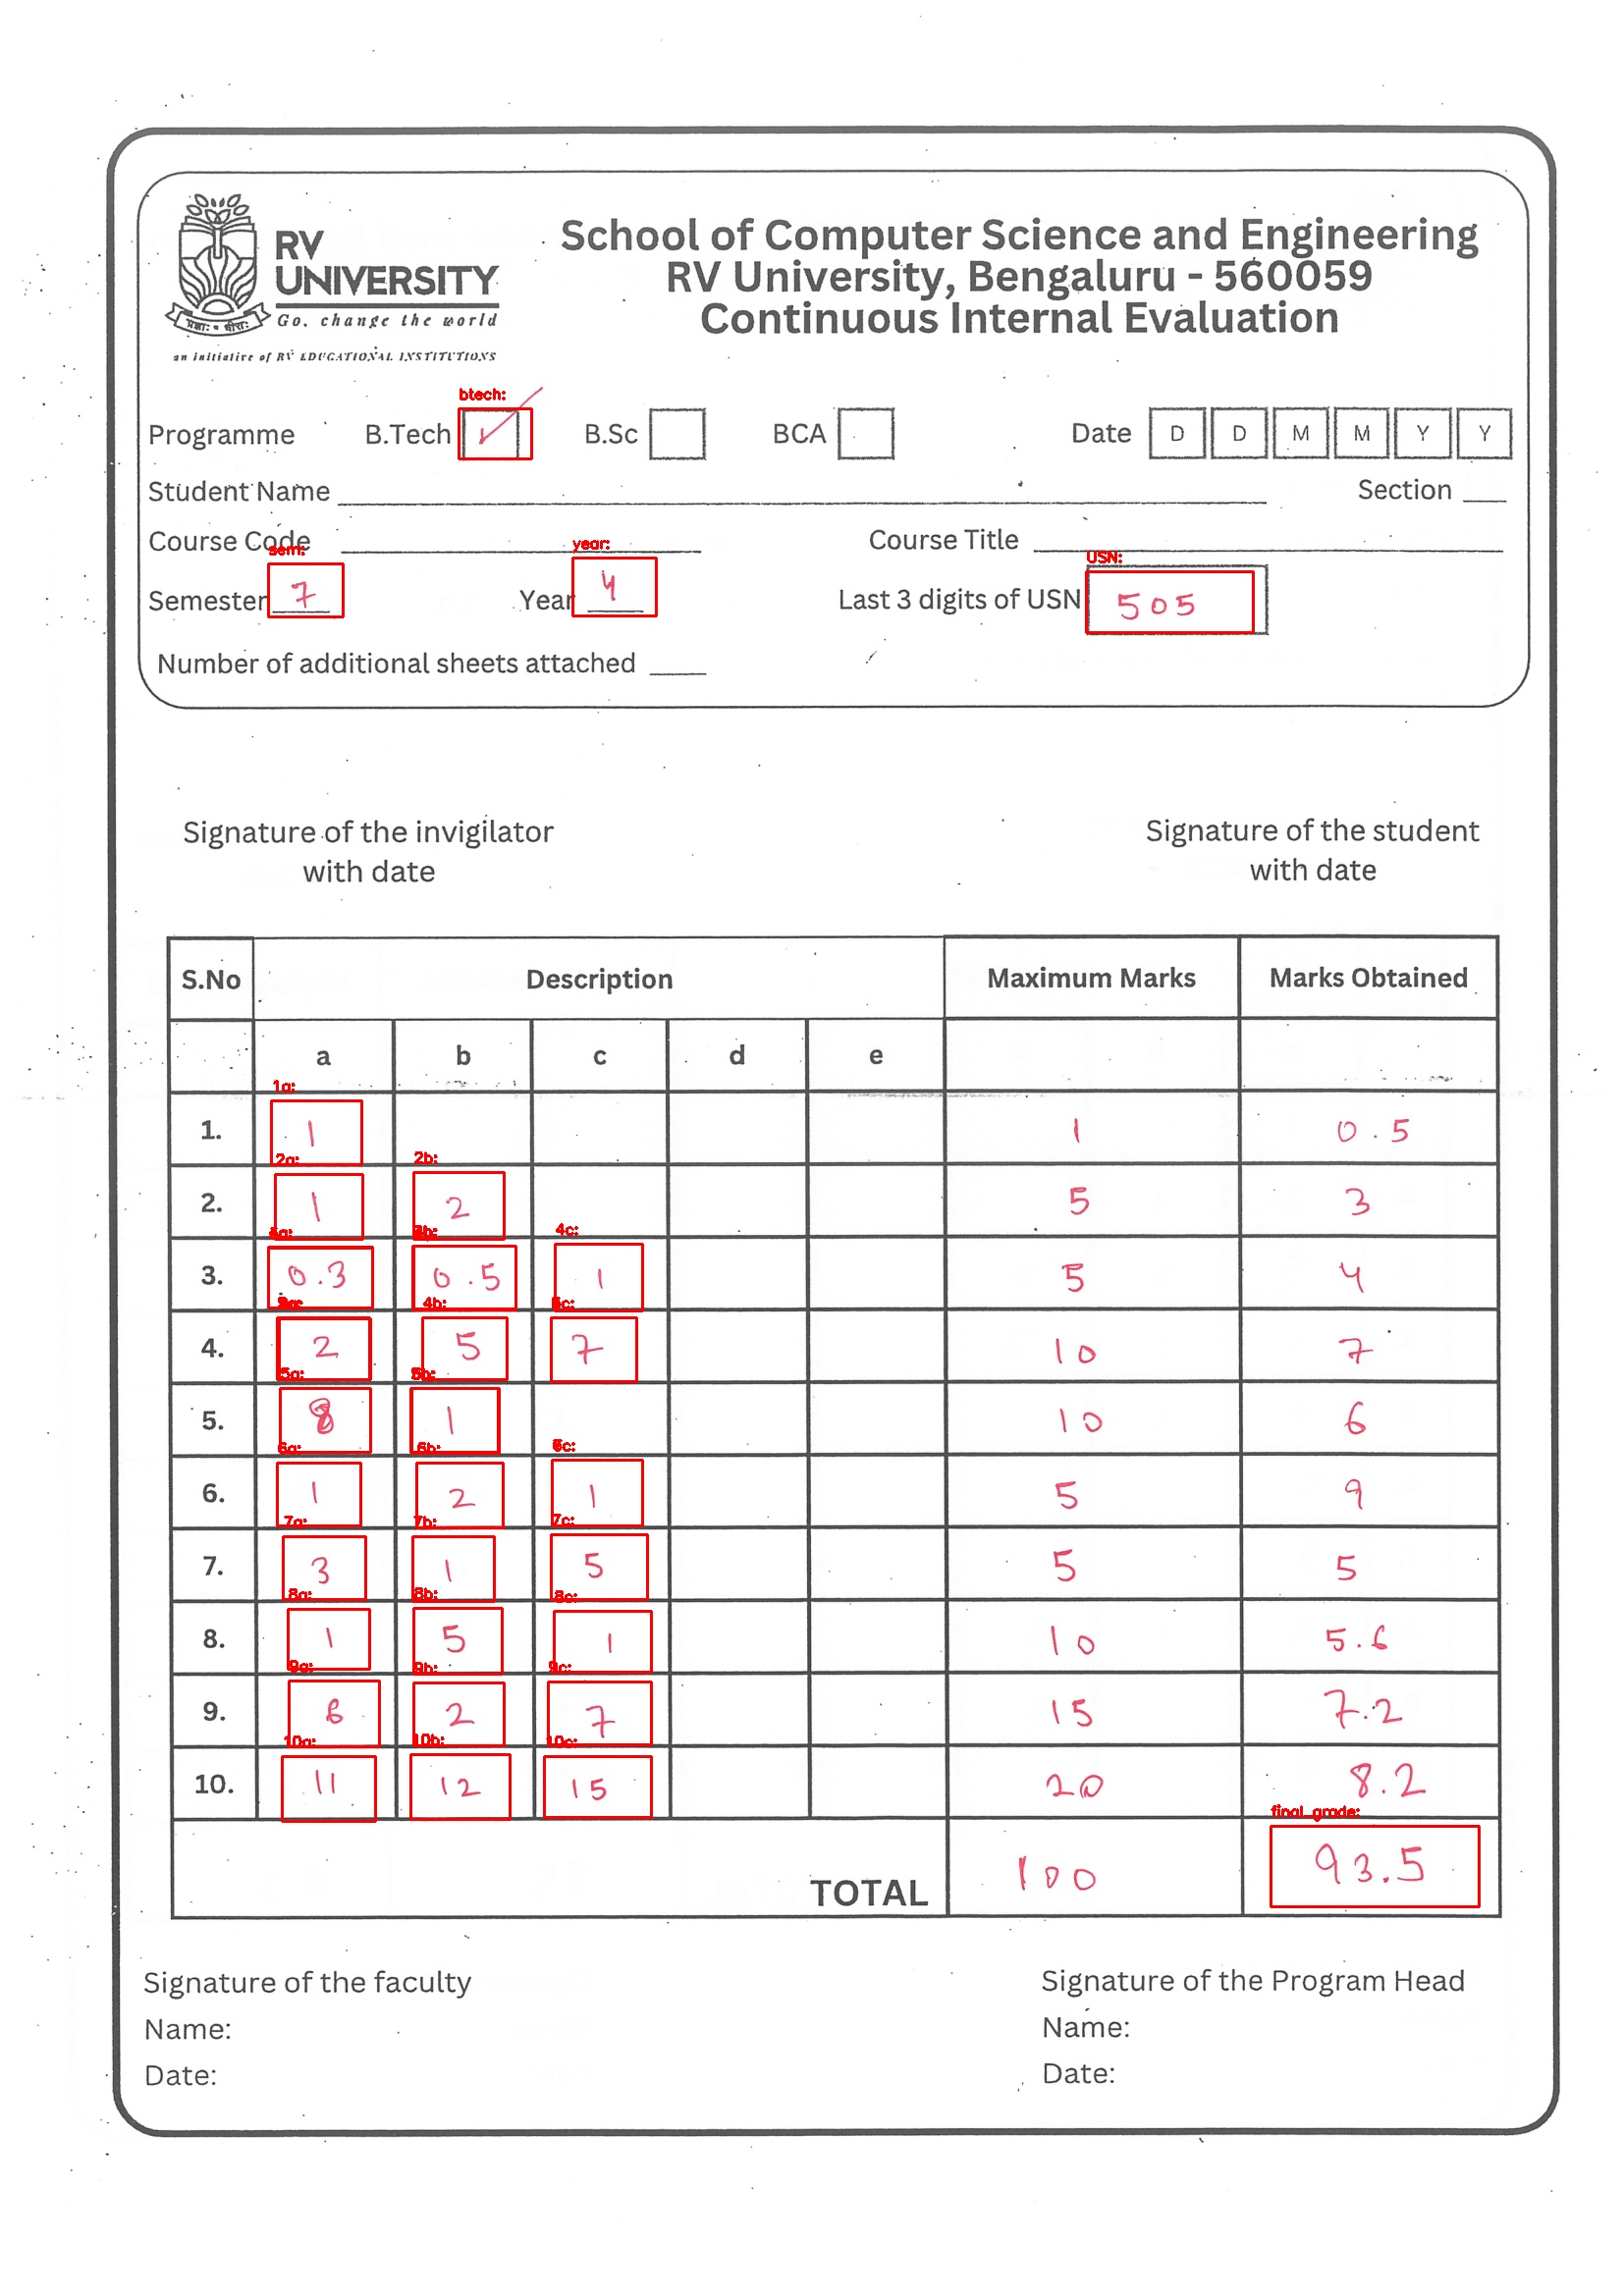 RV
UNIVERSITY
Go, change the world
an initiative of RV EDUCATIONAL INSTITUTIONS
School of Computer Science and Engineering
RV University, Bengaluru - 560059
Continuous Internal Evaluation
btech:
Programme B.Tech ✓ B.Sc BCA Date D D M M Y Y
Student Name Section
Course Code Course Title
sem: year: USN:
Semester 7 Year 4 Last 3 digits of USN 505
Number of additional sheets attached
Signature of the invigilator
with date
Signature of the student
with date
S.No Description Maximum Marks Marks Obtained
a b c d e
1a:
1. 1 1 0.5
2a: 2b:
2. 1 2 5 3
4c:
3. 0.3 0.5 1 5 4
4b:
4. 2 5 7 10 7
5a:
5. 8 1 10 6
6a: 6b:
6. 1 2 1 5 9
7a: 7b: 7c:
7. 3 1 5 5 5
8a: 8b: 8c:
8. 1 5 1 10 5.6
9a: 9b: 9c:
9. 2 7 15 7.2
10a: 10b: 10c:
10. 11 12 15 20 8.2
final_grade:
TOTAL 100 93.5
Signature of the faculty
Name:
Date:
Signature of the Program Head
Name:
Date: